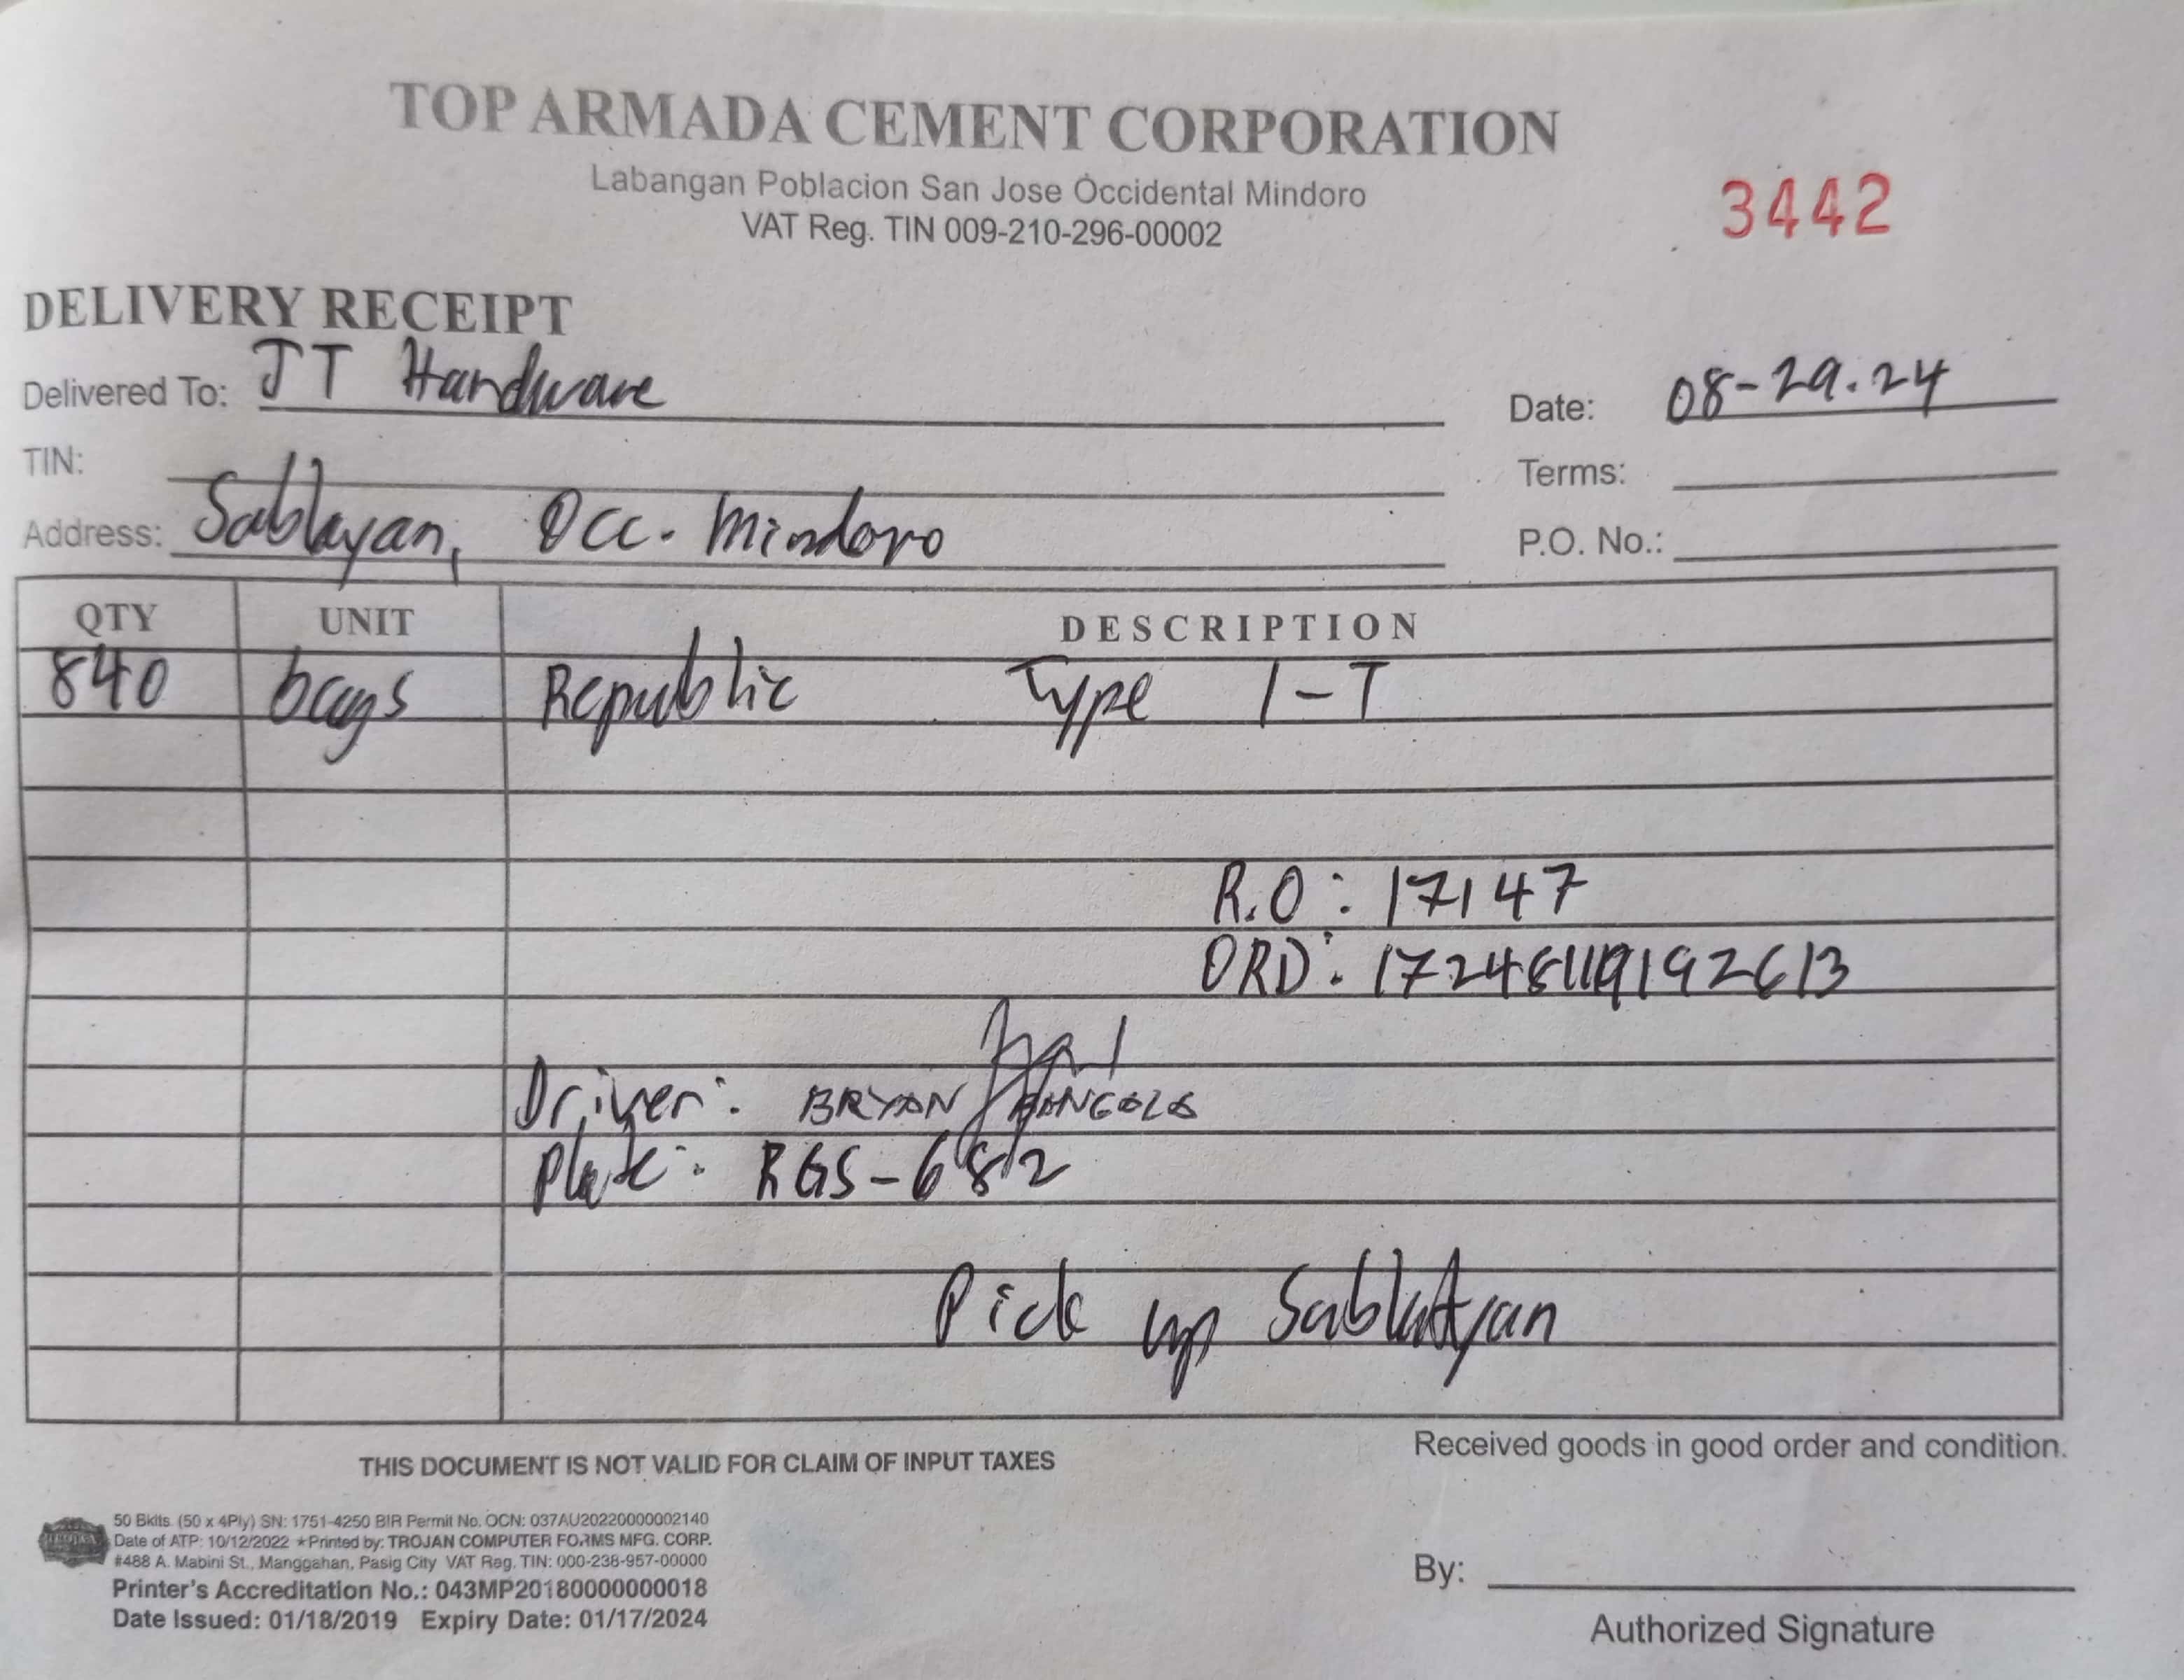 TOP ARMADA CEMENT CORPORATION
Labangan Poblacion San Jose Occidental Mindoro
VAT Reg. TIN 009-210-296-00002
3442
DELIVERY RECEIPT
Delivered To: JT Hardware
Date: 08-29.24
TIN:
Terms:
Address: Sablayan, Occ. Mindoro
P.O. No.:
QTY UNIT DESCRIPTION
840 bags Republic Type 1-T
R.O: 17147
ORD:
Driver: BRYAN
Plate: RGS-682
Pick up Sablayan
THIS DOCUMENT IS NOT VALID FOR CLAIM OF INPUT TAXES
Received goods in good order and condition.
50 Bklts. (50 x 4Ply) SN: 1751-4250 BIR Permit No. OCN: 037AU20220000002140
Date of ATP: 10/12/2022 *Printed by: TROJAN COMPUTER FORMS MFG. CORP.
#488 A. Mabini St., Manggahan, Pasig City VAT Reg. TIN: 000-238-957-00000
Printer's Accreditation No.: 043MP20180000000018
Date Issued: 01/18/2019 Expiry Date: 01/17/2024
By:
Authorized Signature